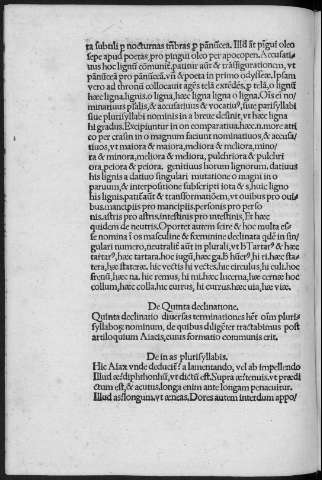 ta subtili p nocturnas tenebras p pānūcea. Illud āt pīgui oleo
sepe apud poetas, pro pingui oleo per apocopen. Accusati
uus hoc lignū cōmunit̄, patiur aūt & trāsfigurationem, ut
pānūcea pro pānūcea. vn̄ & poeta in primo odysseæ. Ipsam
vero ad thronū collocauit agēs telā extēdēs, p telā. o lignū
hæc ligna. lignis. o ligna, hæc ligna ligna o ligna. Oīs eni no/
minatiuus pluralis, & accusatiuus & vocatiuꝰ, siue parisyllabi
siue plurisyllabi nominis in a breue desinit, vt hæc ligna
hi gradus. Excipiuntur in on comparatiua. hæc.n. more atti
co per crasin in o magnum faciunt nominatiuos, & accusa/
tiuos, vt maiora & maiora, meliora & meliora, mino/
ra & minora, meliora & meliora, pulchriora & pulchri
ora, peiora & priora. genitiuus horum lignorum. datiuus
his lignis a datiuo singulari mutatione o magni in o
paruum, & interpositione subscripti iota & s, huic ligno
his lignis. patiſ aūt & transformatiōem, vt ouibus pro oui
bus. mancipiis pro mancipiis. personis pro perso
nis. astris pro astris. intestinis pro intestinis. Et hæc
quidem de neutris. Oportet autem scire & hoc multa es/
se nomina ī os masculine & feminine declinata qdē in sin/
gulari numero, neutralit̄ aūt in plurali, vt hTartarꝰ & hæc
tartarꝰ, hæc tartara. hoc iugū, hæc ga. h hūerꝰ. hi ri. hæc sta/
tera, hæ stateræ. hic vectis hi vectis. hic circulus, hi culi. hoc
frenū, hæc na. hic remus, hi ni. hæc lucerna, hæ cernæ hoc
collum, hæc colla. hic currus, hi currus. hæc uia, hæ viæ.
De Quinta declinatione.
Quinta declinatio diuersas terminationes hēt oīm pluris
syllaboꝝ nominum, de quibus diligēter tractabimus post
artiloquium Aiacis, cuius formatio communis erit.
De in as plurisyllabis.
Hic Aiax vnde deduciſ? a lamentando, vel ab impellendo
Illud æ diphthonḡū, vt dictū est. Supra æ tenuis. vt prædi
ctum est, & acutus. longa enim ante longam penacuitur.
Illud as longum. vt æneas. Dores autem interdum appo/